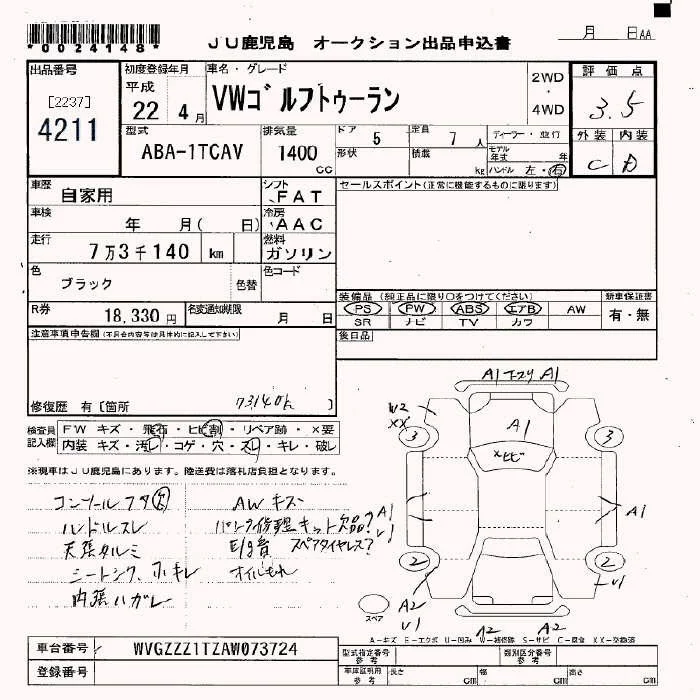 *0024148*
JU鹿児島 オークション出品申込書
月 日AA
出品番号
[2237]
4211
初度登録年月
平成
22 4月
車名・グレード
VWゴルフトゥーラン
2WD
・
4WD
評価点
3.5
外装 内装
C D
型式
ABA-1TCAV
排気量
1400
CC
ドア 5
定員 7人
ディーラー・並行
形状
積載 kg
モデル年式 年
ハンドル 左・右
車歴
自家用
シフト
FAT
セールスポイント(正常に機能するものに限ります)
車検
年 月( 日)
冷房
AAC
走行
7万3千140 km
燃料
ガソリン
色
ブラック
色替
色コード
R券
18,330円
名変通知期限
月 日
装備品(純正品に限り○をつけてください)
PS PW ABS エアB AW
SR ナビ TV カワ
新車保証書
有・無
注意事項申告欄(不具合内容等は具体的に記入して下さい)
後日品
修復歴 有〔箇所 〕
73140k
検査員記入欄
FW キズ・飛石・ヒビ割・リペア跡・×要
内装 キズ・汚レ・コゲ・穴・スレ・キレ・破レ
※現車はJU鹿児島にあります。陸送費は落札店負担となります。
コンソールフタ欠 AWキズ
ハンドルスレ パンク修理キット欠品?
天張タルミ E/g音 スペアタイヤレス?
シートシワ、ホキレ オイルもれ
内張ハガレ
A1 エクリ A1
W2
XX
3
3
A1
×ヒビ
A1
V1
A1
2
2
V1
A2
V1
A2
A2
スペア
A-キズ E-エクボ U-凹み W-補修跡 S-サビ C-腐食 XX-交換済
車台番号
WVGZZZ1TZAW073724
登録番号
型式指定番号
参考
類別区分番号
参考
車庫証明用
参考
長さ cm
幅 cm
高さ cm